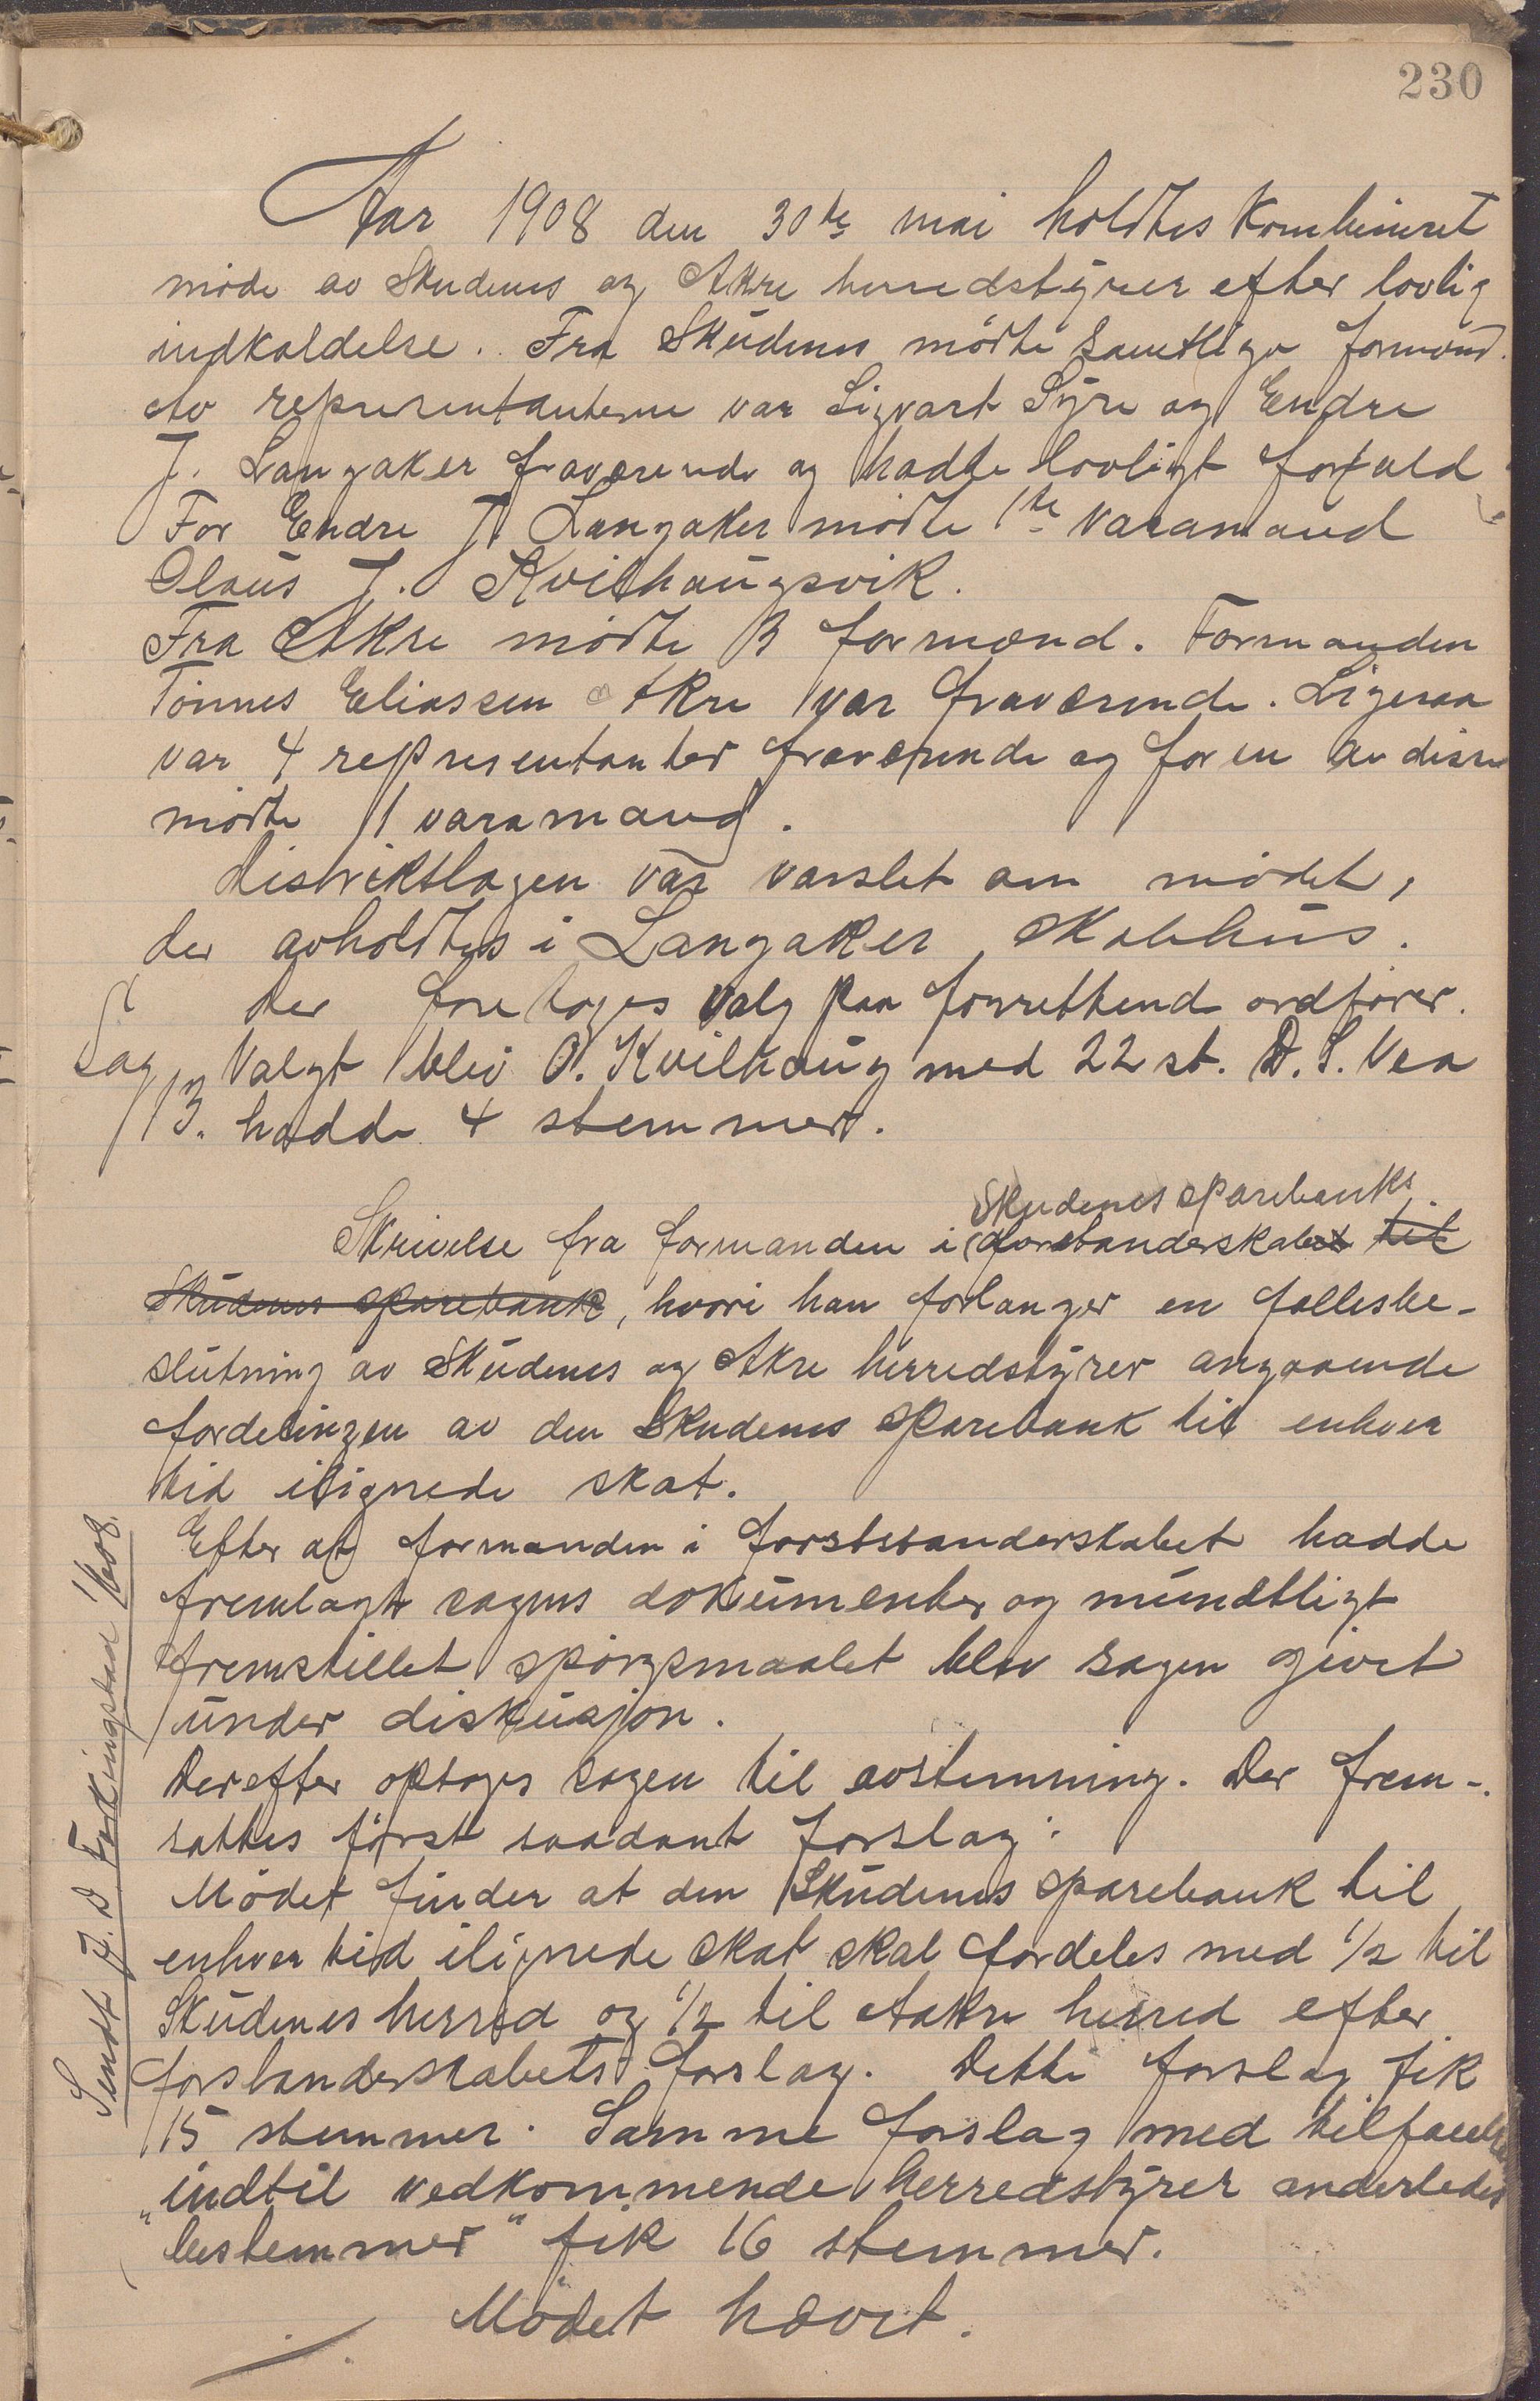 230
Aar 1908 den 30te mai holdtes kombineret
møde av Skudenes og Akre herredstyrer efter lovlig
indkaldelse. Fra Skudenes mødte samtlige formænd.
Av representanterne var Sigvart Syre og Endre
J. Langaker fraværende og hadde lovligt forfald
For Endre J. Langaker mødte 1te varamand
Olaus J. Kvilhaugsvik.
Fra Akre mødte 3 formænd. Formanden
Tønnes Eliassen Akre var fraværende. Ligesaa
var 4 representanter fraværende og for en av disse
mødte 1 varamand.
Distriktlægen var varslet om mødet,
der avholdtes i Langaker skolehus.
Der foretoges valg paa forrettend ordfører.
Valgt blev O. Kvilhaug med 22 st. D. S. Vea
hadde 4 stemmer.
Sag
13.
Skudenes sparebanks
Skrivelse fra formanden i forstanderskabet til
Skudenes sparebank, hvori han forlanger en fællesbe-
slutning av Skudenes og Akre herredstyrer angaaende
fordelingen av den Skudenes sparebank til enhver
tid ilignede skat.
Efter at formanden i forstsanderskabet hadde
fremlagt sagens dokumenter og mundtligt
fremstillet spørgsmaalet blev sagen givet
under diskusjon.
Derefter optoges sagen til avstemning. Der frem-
sattes først saadant forslag:
Mødet finder at den Skudenes sparebank til
enhver tid ilignede skat skal fordeles med 1/2 til
Skudenes herred og 1/2 til Aakre herred efter
forstanderskabets forslag. Dette forslag fik
15 stemmer. Samme forslag med tilføielse
"indtil vedkommende herredstyrer anderledes
bestemmer" fik 16 stemmer.
Mødet hævet.
Sendt J. D. Ferkingstad 08.